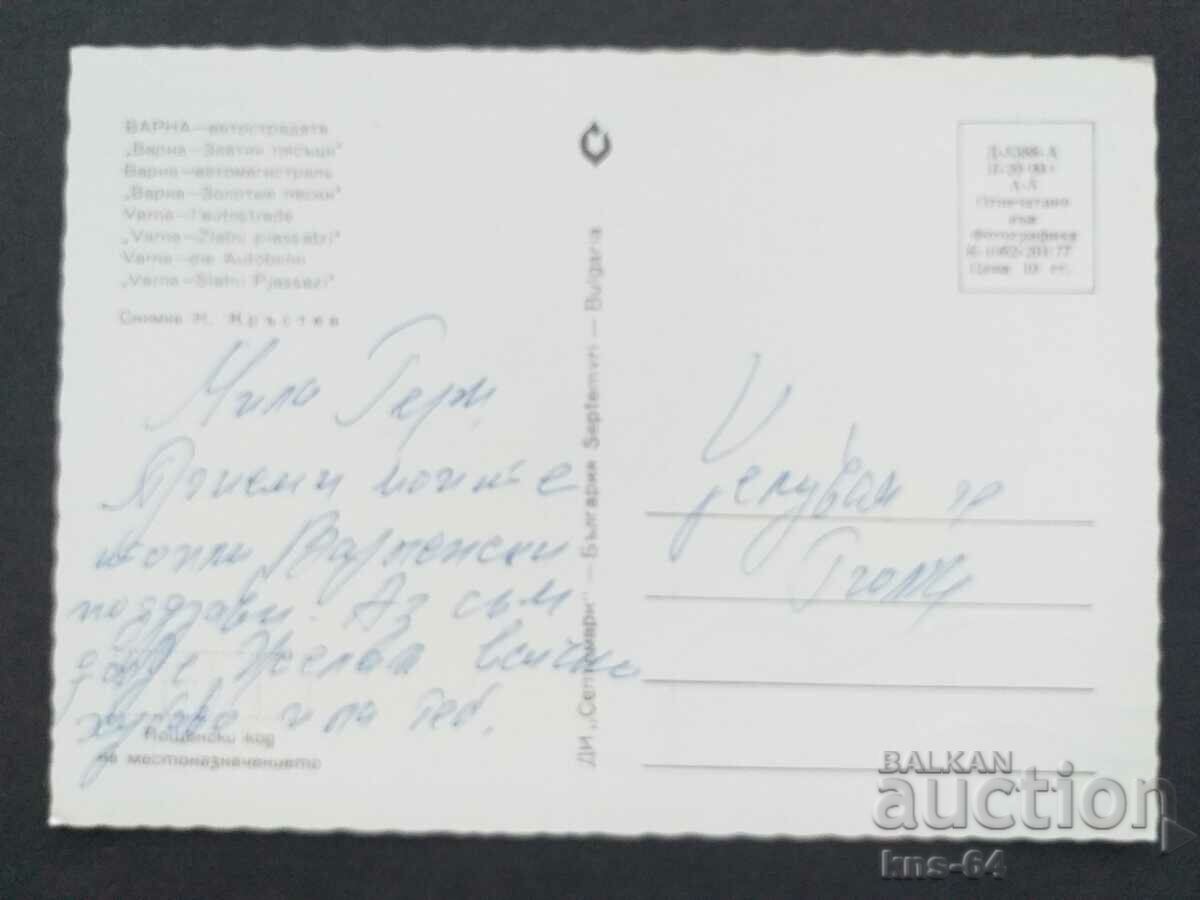 ВАРНА—автострадата
„Варна—Златни пясъци"
Варна—автомагистраль
„Варна—Золотые пески"
Varna—l'autostrade
„Varna—Zlatni piassatzi"
Varna—die Autobahn
„Varna—Slatni Pjassazi"
Снимка Н. Кръстев
Мила Гери,
Приеми моите
топли Варненски
поздрави. Аз съм
добре. Желая всичко
хубаво и на теб.
Пощенски код
на местоназначението
ДИ „Септември" — България Septemvri — Bulgaria
Отпечатано
във
Фотографика
Цена 10 ст.
Целувам те
BALKAN
auction
kns-64